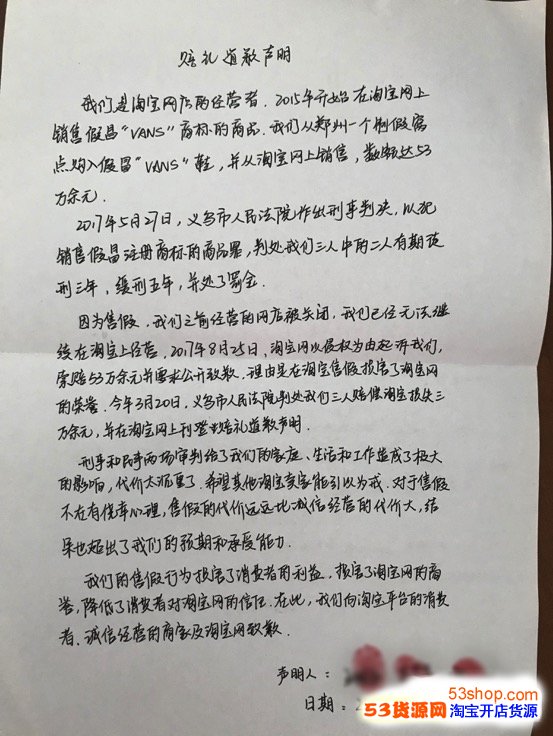 赔礼道歉声明
我们是淘宝网店的经营者．2015年开始在淘宝网上
销售假冒“VANS”商标的商品．我们从郑州一个制假窝
点购入假冒“VANS”鞋，并从淘宝网上销售，数额达53
万余元．
2017年5月27日，义乌市人民法院作出刑事判决，以犯
销售假冒注册商标的商品罪，判处我们三人中的二人有期徒
刑三年，缓刑五年，并处了罚金．
因为售假，我们之前经营的网店被关闭，我们已经无法继
续在淘宝上经营．2017年8月25日，淘宝网以侵权为由起诉我们，
索赔53万余元并要求公开致歉．理由是在淘宝售假损害了淘宝网
的荣誉．今年3月20日，义乌市人民法院判处我们三人赔偿淘宝损失三
万余元，并在淘宝网上刊登赔礼道歉声明．
刑事和民事两场审判给了我们的家庭、生活和工作造成了极大
的影响，代价太沉重了．希望其他淘宝卖家能引以为戒．对于售假
不在有侥幸心理，售假的代价远远比诚信经营的代价大，结
果也超出了我们的预期和承受能力．
我们的售假行为损害了消费者的利益，损害了淘宝网的商
誉，降低了消费者对淘宝网的信任．在此，我们向淘宝平台的消费
者、诚信经营的商家及淘宝网致歉．
声明人：
日期：2
53shop.com
53货源网 淘宝开店货源